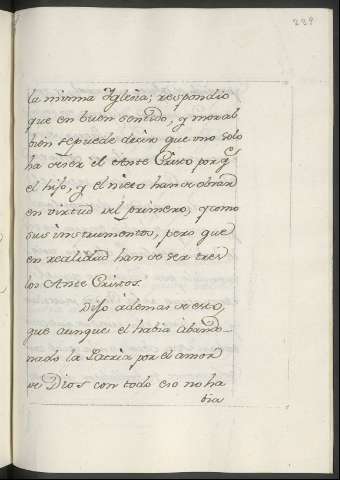 229
la misma Iglesia; respondio
que en buen sentido, y moral
bien se puede decir que uno solo
ha de ser el Ante Cristo por q.e
el hijo, y el nieto han de obrar
en virtud del primero, y como
sus instrumentos, pero que
en realidad han de ser tres
los Ante Cristos.
Dijo ademas de esto,
que aunque el habia abando-
nado la Patria por el amor
de Dios con todo eso no ha
bia